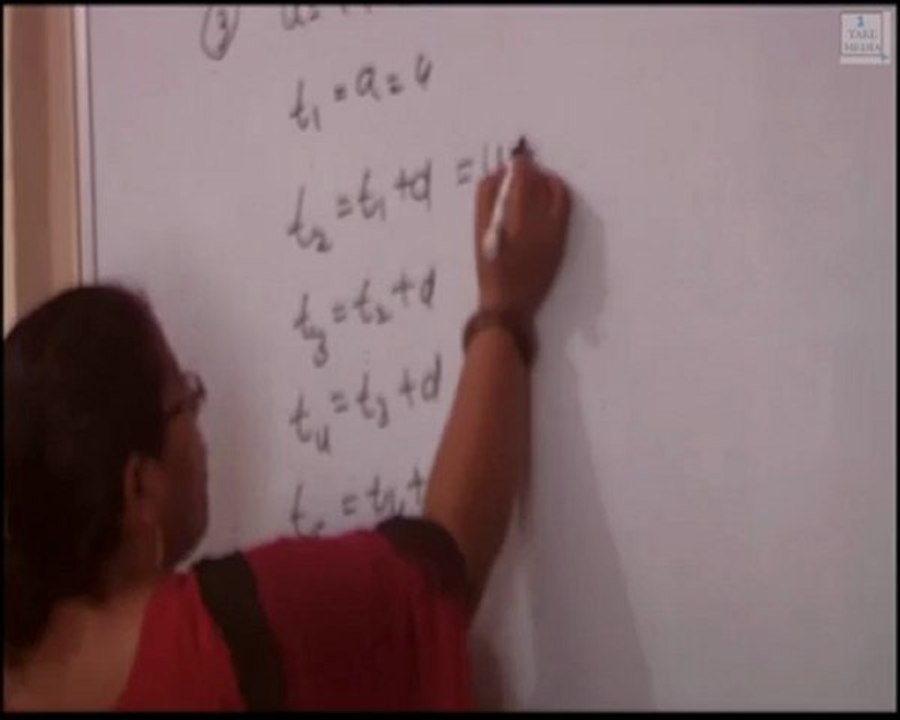 ③ a=
t₁ = a = 4
t₂ = t₁ + d = 4+
t₃ = t₂ + d
t₄ = t₃ + d
t₅ = t₄ +
1 TAKE MEDIA